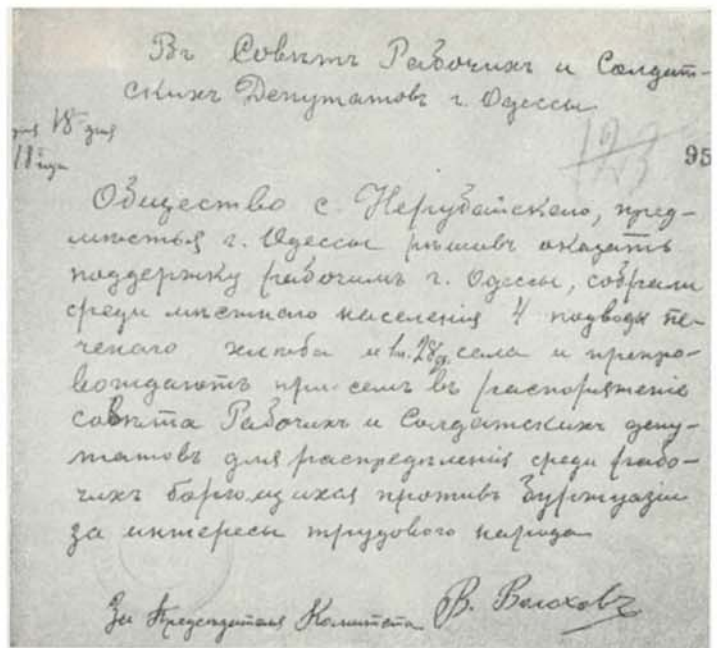 Въ Совѣтъ Рабочихъ и Солдат-
скихъ Депутатовъ г. Одессы
18 дня
18 года
123
95
Общество с. Нерубайскаго, пред-
мѣстья г. Одессы рѣшивъ оказать
поддержку рабочимъ г. Одессы, собрали
среди мѣстнаго населенія 4 подводы пе-
ченаго хлѣба и 28 сала и препро-
вождаютъ при семъ въ распоряженіе
совѣта Рабочихъ и Солдатскихъ депу-
татовъ для распредѣленія среди рабо-
чихъ борющихся противъ буржуазіи
за интересы трудового народа
За Предсѣдателя Комитета В. Волоховъ